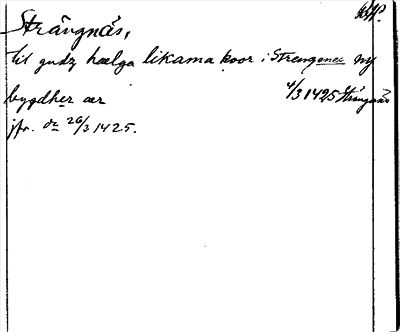 Strängnäs,
til gudz hælga likama koor i Strengenes ny
bygdher ær 4/3 1425 Strängnäs
jfr. dr 26/3 1425.